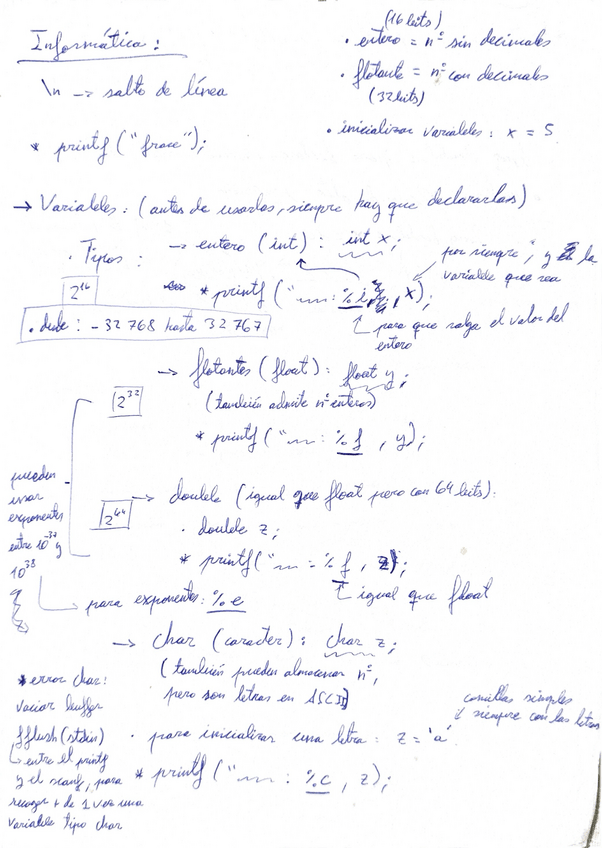 Informática:
\n -> salto de línea
* printf ("frase");
(16 bits)
• entero = nº sin decimales
• flotante = nº con decimales
(32 bits)
• inicializar variables: x = 5
→ Variables: (antes de usarlas, siempre hay que declararlas)
• Tipos:
→ entero (int): int x;
* printf ("~~: %i , x);
poner siempre , y la
variable que sea
para que salga el valor del
entero
2^16
• desde: -32 768 hasta 32 767
→ flotantes (float): float y;
(también admite nº enteros)
* printf ("~~: %f , y);
2^32
→ double (igual que float pero con 64 bits):
2^64
• double z;
* printf ("~~ = %f , z);
igual que float
pueden
usar
exponentes
entre 10^-37 y
10^38
para exponentes: %e
→ char (caracter): char z;
(también pueden almacenar nº,
pero son letras en ASCII)
• para inicializar una letra: z = 'a'
comillas simples
siempre con las letras
* printf ("~~: %c , z);
* error char:
vaciar buffer
fflush(stdin)
entre el printf
y el scanf, para
recoger + de 1 vez una
variable tipo char